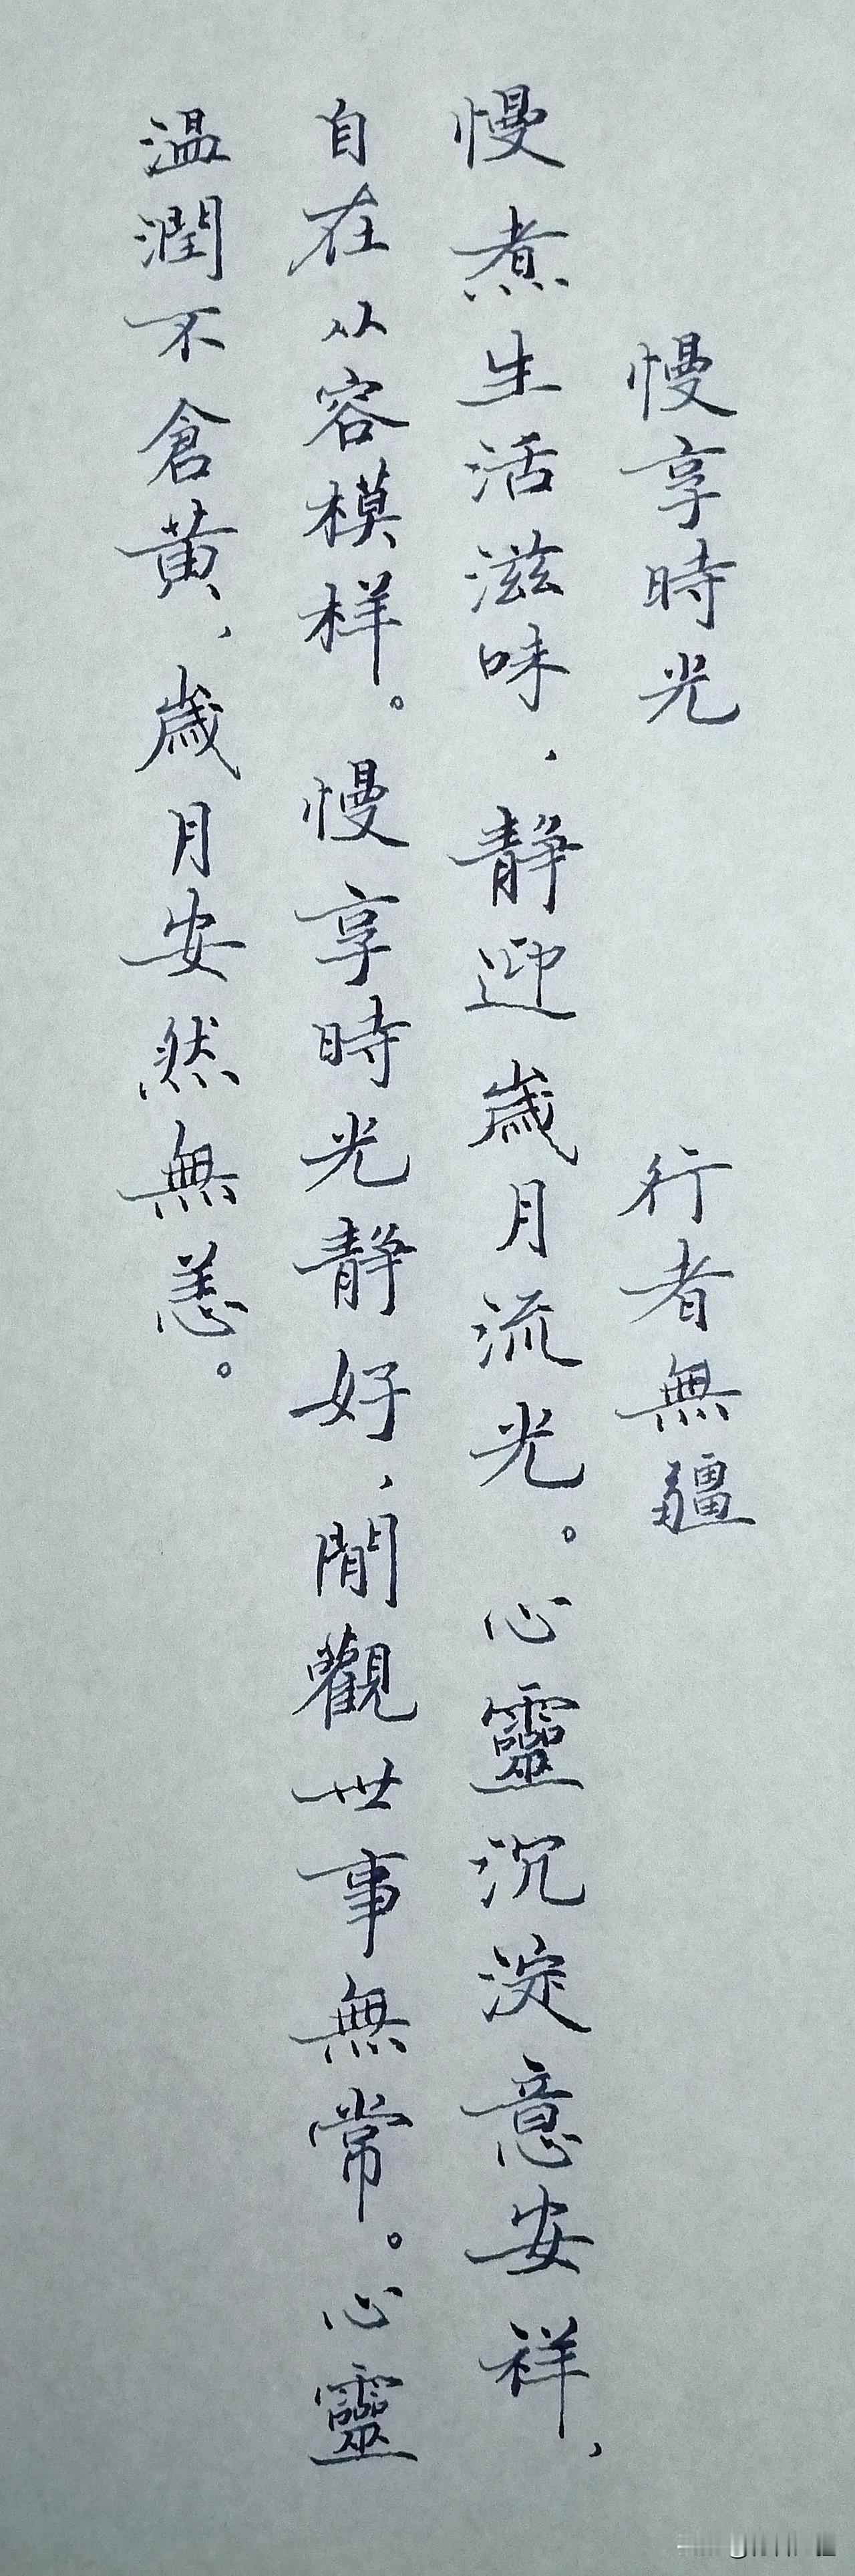 慢享時光 行者無疆
慢煮生活滋味，静迎歲月流光。心靈沉淀意安祥，
自在从容模样。慢享時光静好，閒觀世事無常。心靈
温潤不倉黄，歲月安然無恙。